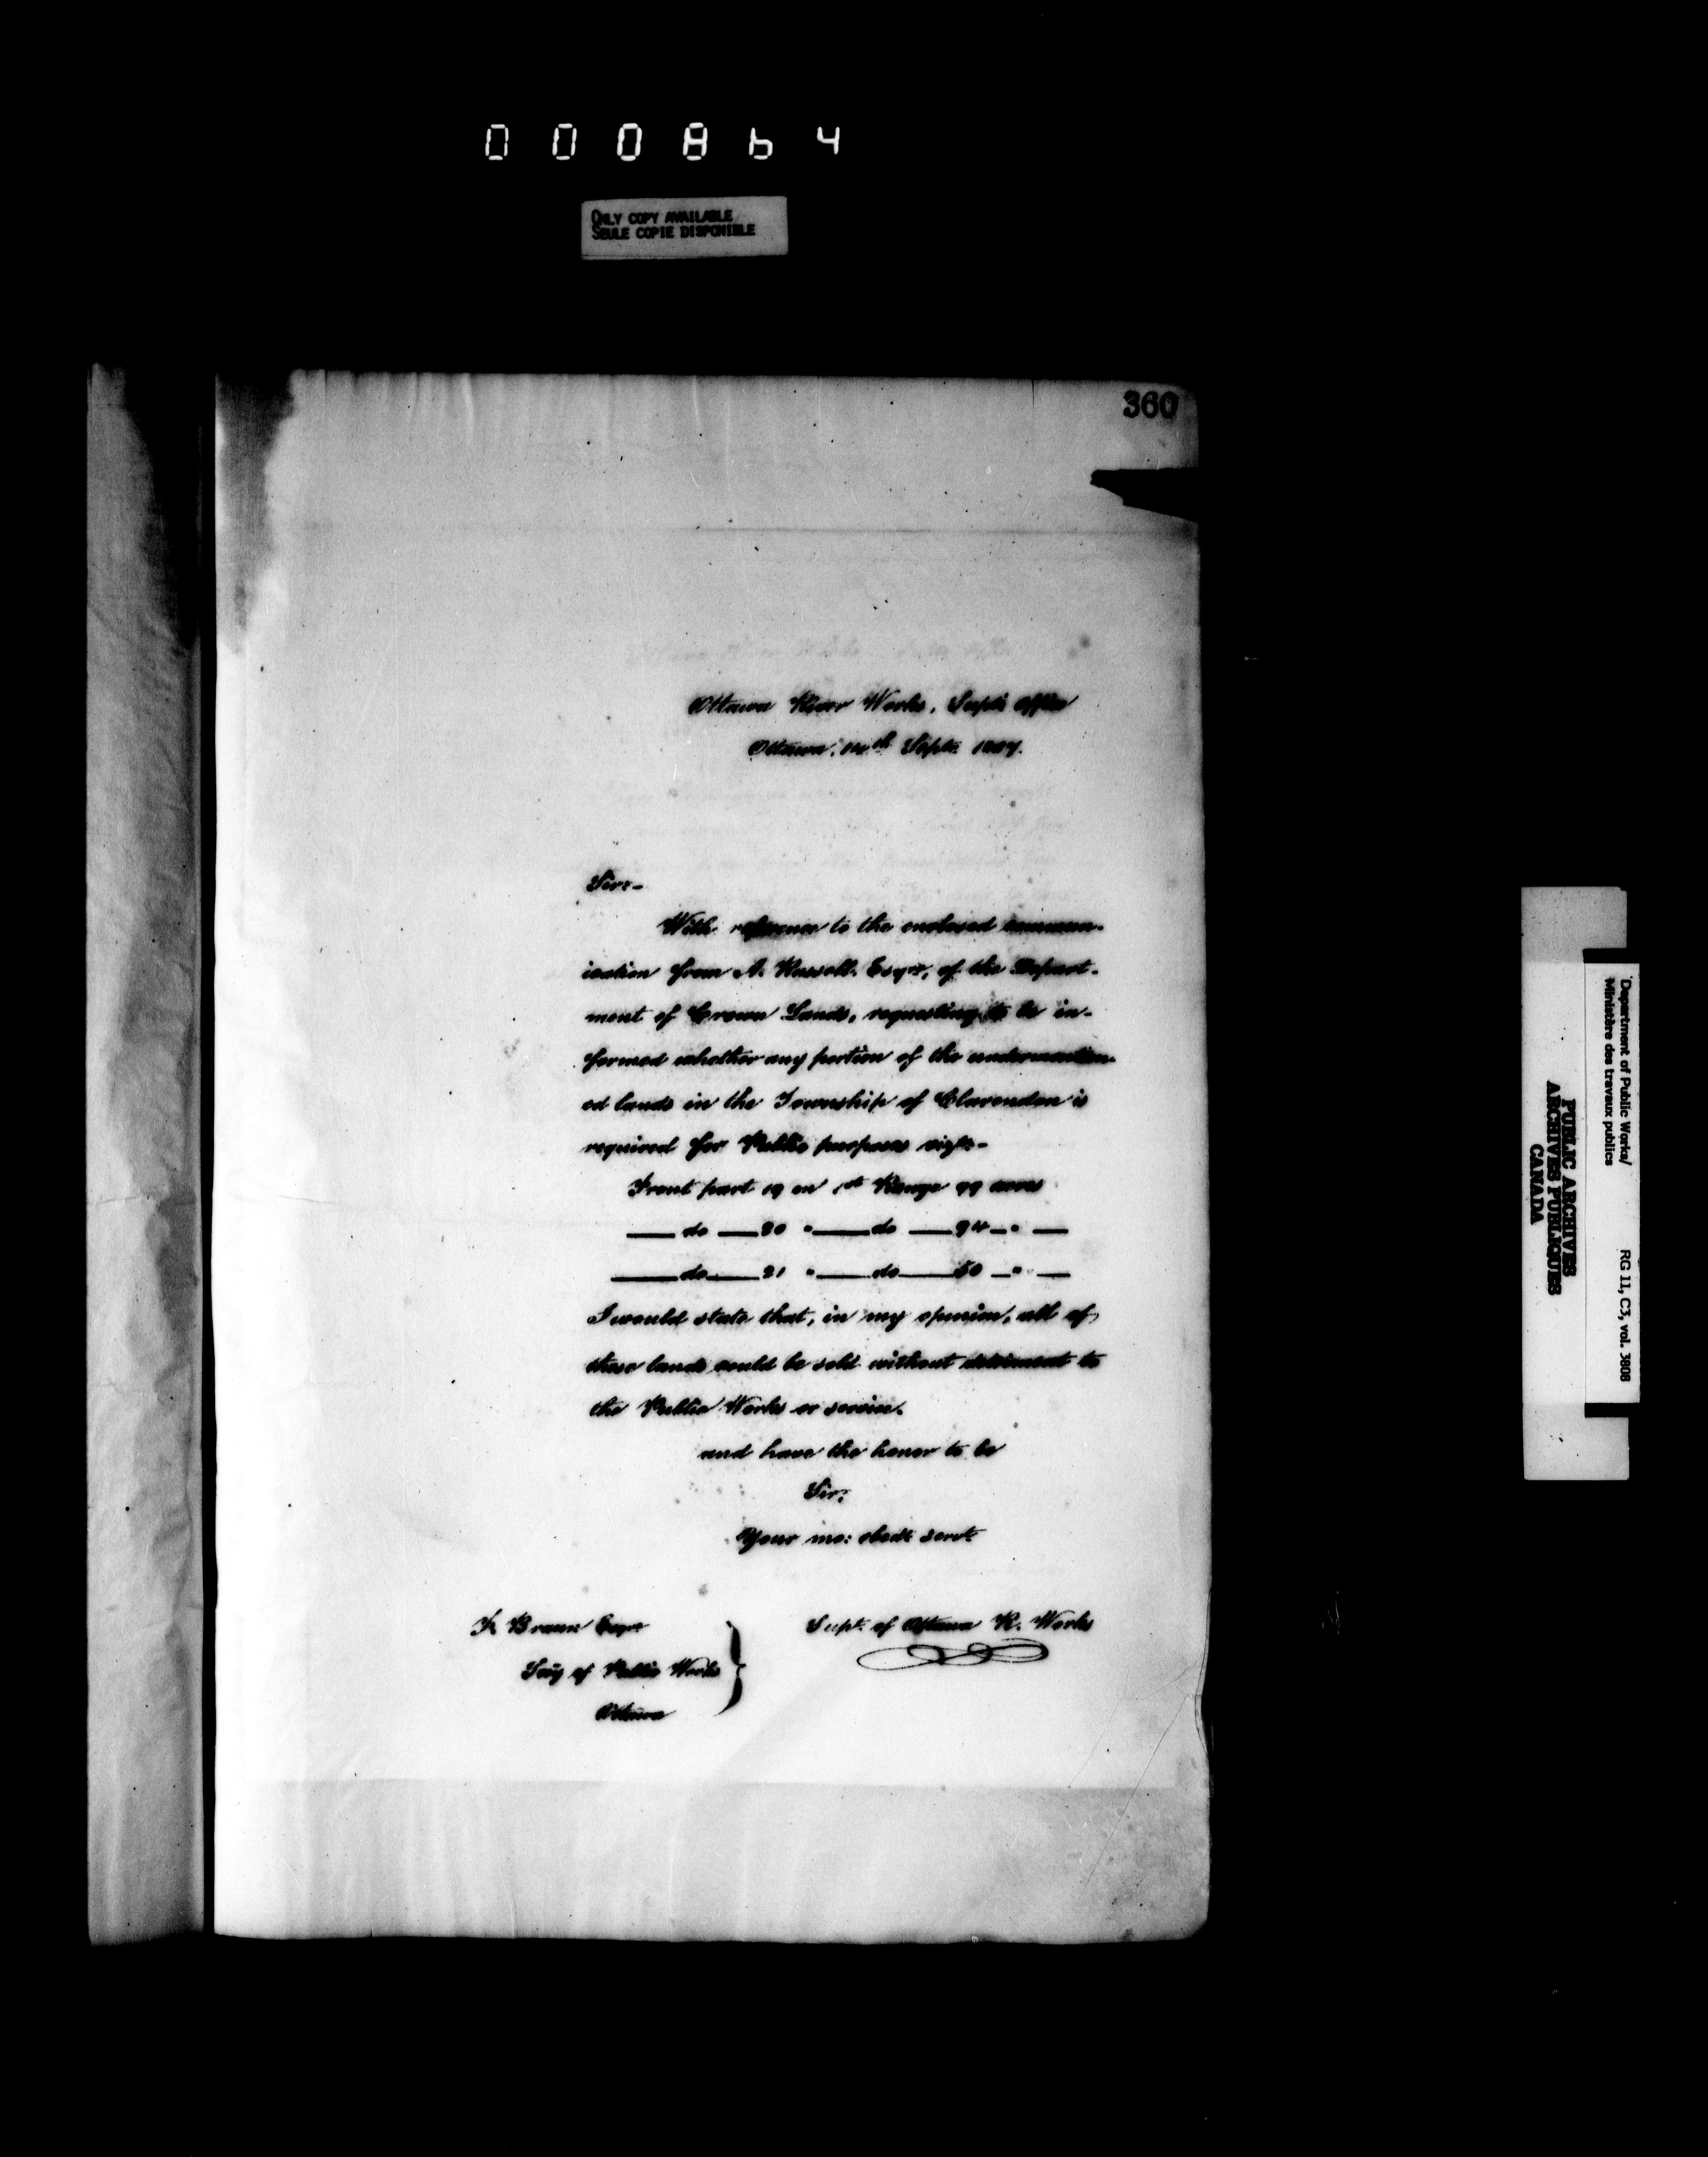 000864
ONLY COPY AVAILABLE
SEULE COPIE DISPONIBLE
360
Ottawa River Works, Supt's Office
Ottawa, 14th Sept. 1867.
Sir:-
With reference to the enclosed commun-
ication from A. Russell, Esqre, of the Depart-
ment of Crown Lands, requesting to be in-
formed whether any portion of the undermention-
ed lands in the Township of Clarendon is
required for Public purposes vizt:-
Front part 19 on 1st Range 99 acres
do 20 " do 94 "
do 21 " do 50 "
I would state that, in my opinion, all of
these lands could be sold without detriment to
the Public Works or service.
and have the honor to be
Sir,
Your mo: obedt servt
F. Braun Esqre
Secy of Public Works
Ottawa
Supt. of Ottawa R. Works
Department of Public Works/
Ministère des travaux publics
RG 11, C3, vol. 3808
PUBLIC ARCHIVES
ARCHIVES PUBLIQUES
CANADA